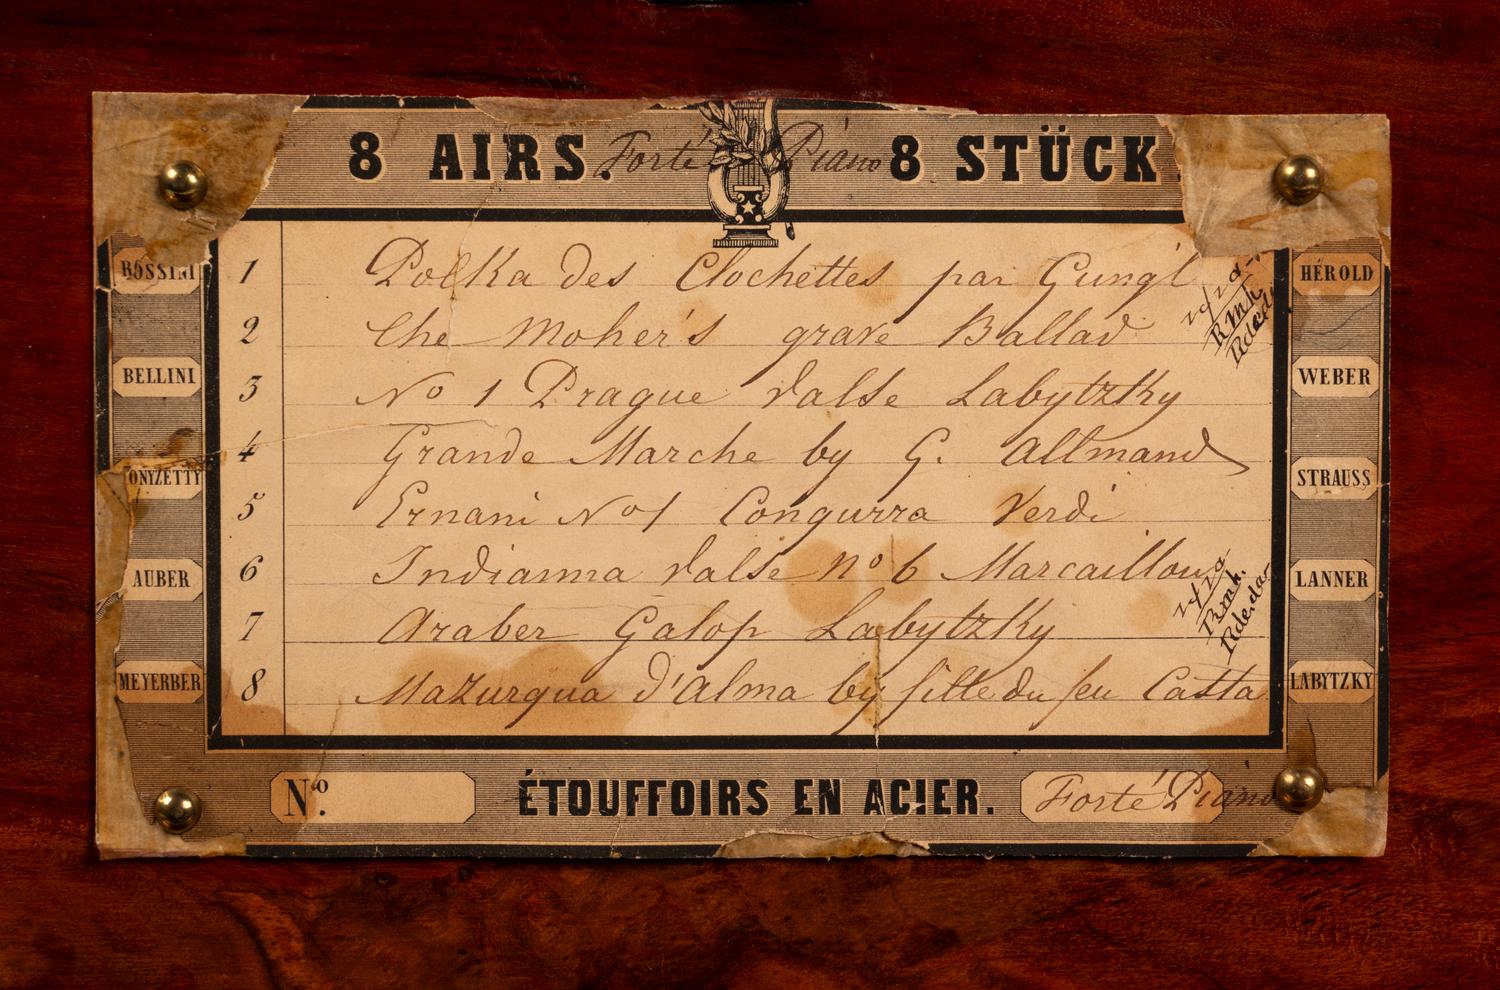 8 AIRS. Forté Piano 8 STÜCK.
ROSSINI
BELLINI
ONYZETTY
AUBER
MEYERBER
HÉROLD
WEBER
STRAUSS
LANNER
LABYTZKY
1 Polka des Clochettes par Gungl
2 The Moher's grave Ballad
3 No 1 Prague Valse Labytzky
4 Grande Marche by G. Allmand
5 Ernani No 1 Congurra Verdi
6 Indianna Valse No 6 Marcaillou
7 Araber Galop Labytzky
8 Mazurqua d'Alma by fille du feu Casta
No. ÉTOUFFOIRS EN ACIER. Forté Piano